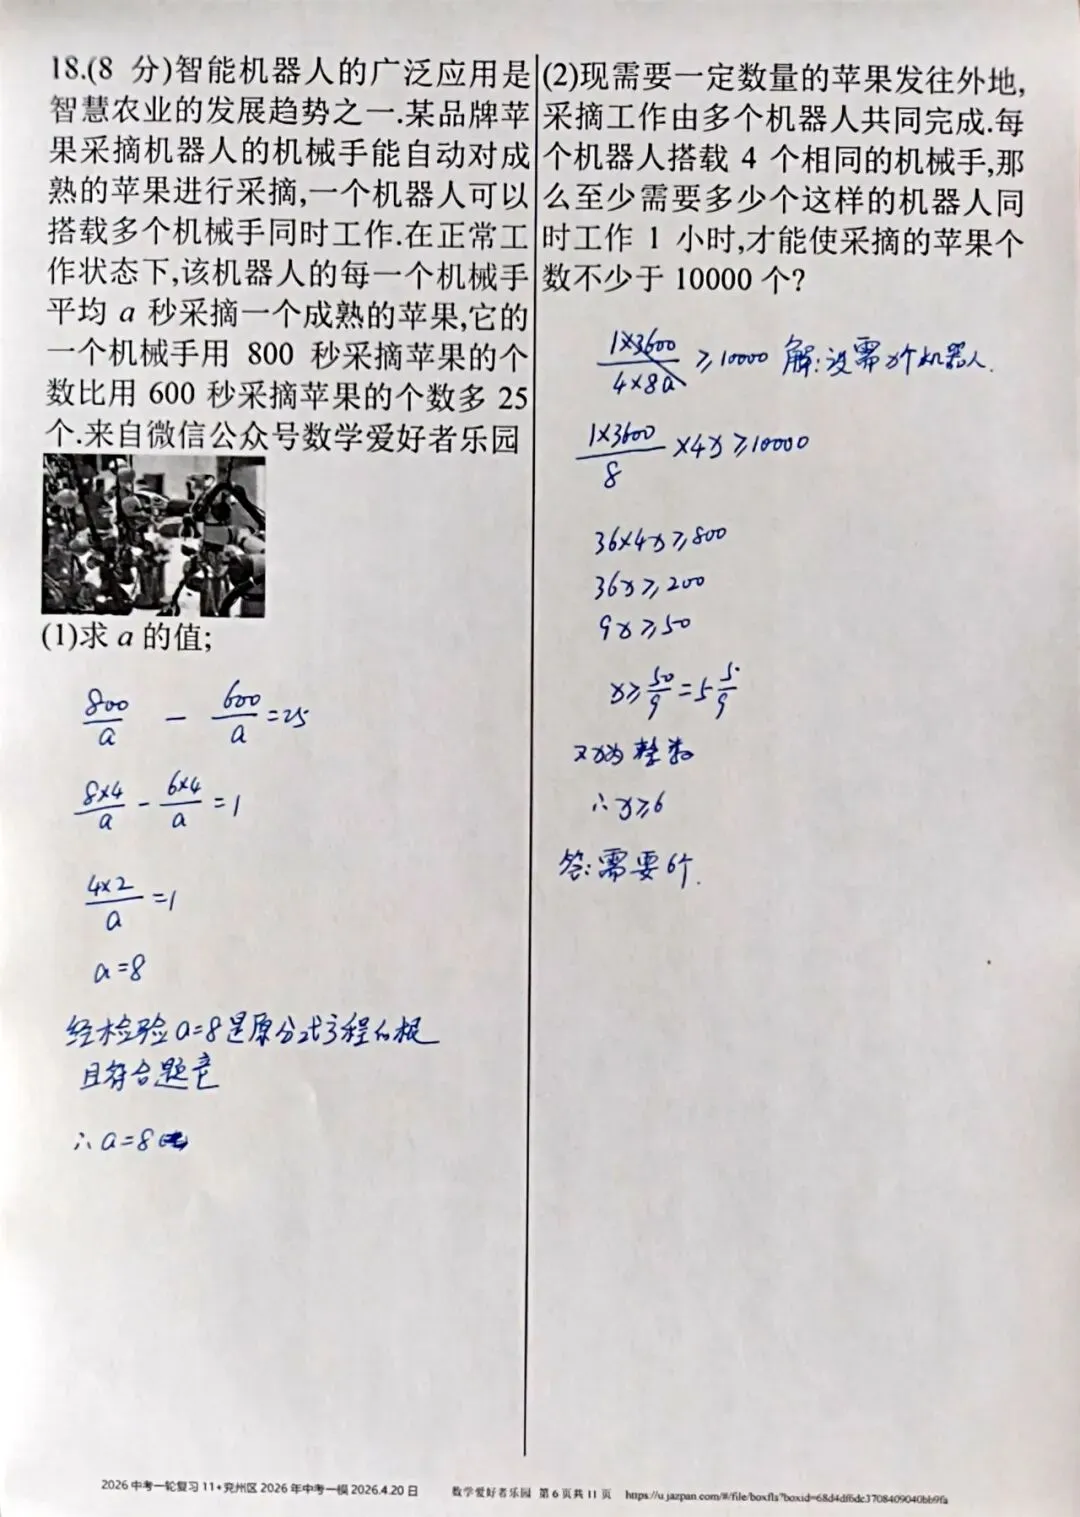 18.(8 分)智能机器人的广泛应用是
智慧农业的发展趋势之一.某品牌苹
果采摘机器人的机械手能自动对成
熟的苹果进行采摘,一个机器人可以
搭载多个机械手同时工作.在正常工
作状态下,该机器人的每一个机械手
平均 a 秒采摘一个成熟的苹果,它的
一个机械手用 800 秒采摘苹果的个
数比用 600 秒采摘苹果的个数多 25
个.来自微信公众号数学爱好者乐园
(1)求 a 的值;
800/a - 600/a =25
8×4/a - 6×4/a =1
4×2/a =1
a=8
经检验a=8是原分式方程的根
且符合题意
∴a=8
(2)现需要一定数量的苹果发往外地,
采摘工作由多个机器人共同完成.每
个机器人搭载 4 个相同的机械手,那
么至少需要多少个这样的机器人同
时工作 1 小时,才能使采摘的苹果个
数不少于 10000 个?
1×3600/4×8a ≥10000 解:设需x个机器人.
1×3600/8 ×4x≥10000
36×4x≥800
36x≥200
9x≥50
x≥50/9=5 5/9
又x为整数
∴x≥6
答:需要6个.
2026 中考一轮复习 11+兖州区 2026 年中考一模 2026.4.20 日 数学爱好者乐园 第 6 页共 11 页 https://u.jazpan.com/#/file/boxfls?boxid=68d4df6dc3708409040bb9fa